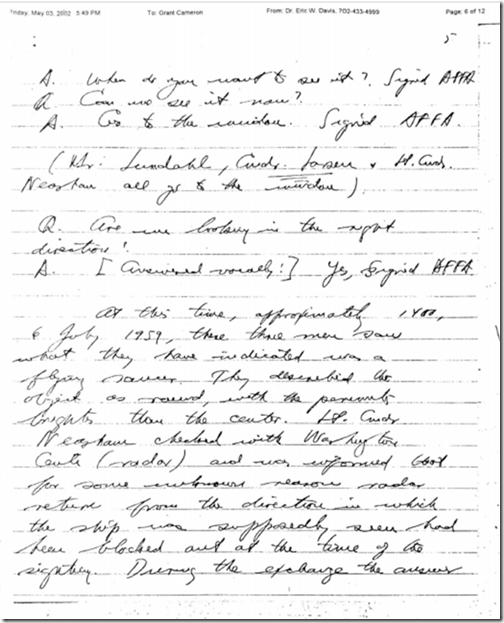 Friday, May 03, 2002 5:49 PM To: Grant Cameron From: Dr. Eric W. Davis, 702-433-4999 Page: 6 of 12
5
A. When do you want to see it? Signed AFFA
Q Can we see it now?
A. Go to the window. Signed AFFA.
(Mr. Lundahl, Cmdr. Larsen & Lt. Cmdr.
Neasham all go to the window).
Q. Are we looking in the right
direction?
A. [Answered vocally!] Yes, Signed AFFA
At this time, approximately 1400,
6 July 1959, these three men saw
what they have indicated was a
flying saucer. They described the
object as round, with the perimeter
brighter than the center. Lt. Cmdr
Neasham checked with Washington
Center (radar) and was informed that
for some unknown reason radar
return from the direction in which
the ship was supposedly seen had
been blocked out at the time of the
sighting. During the exchange the answer